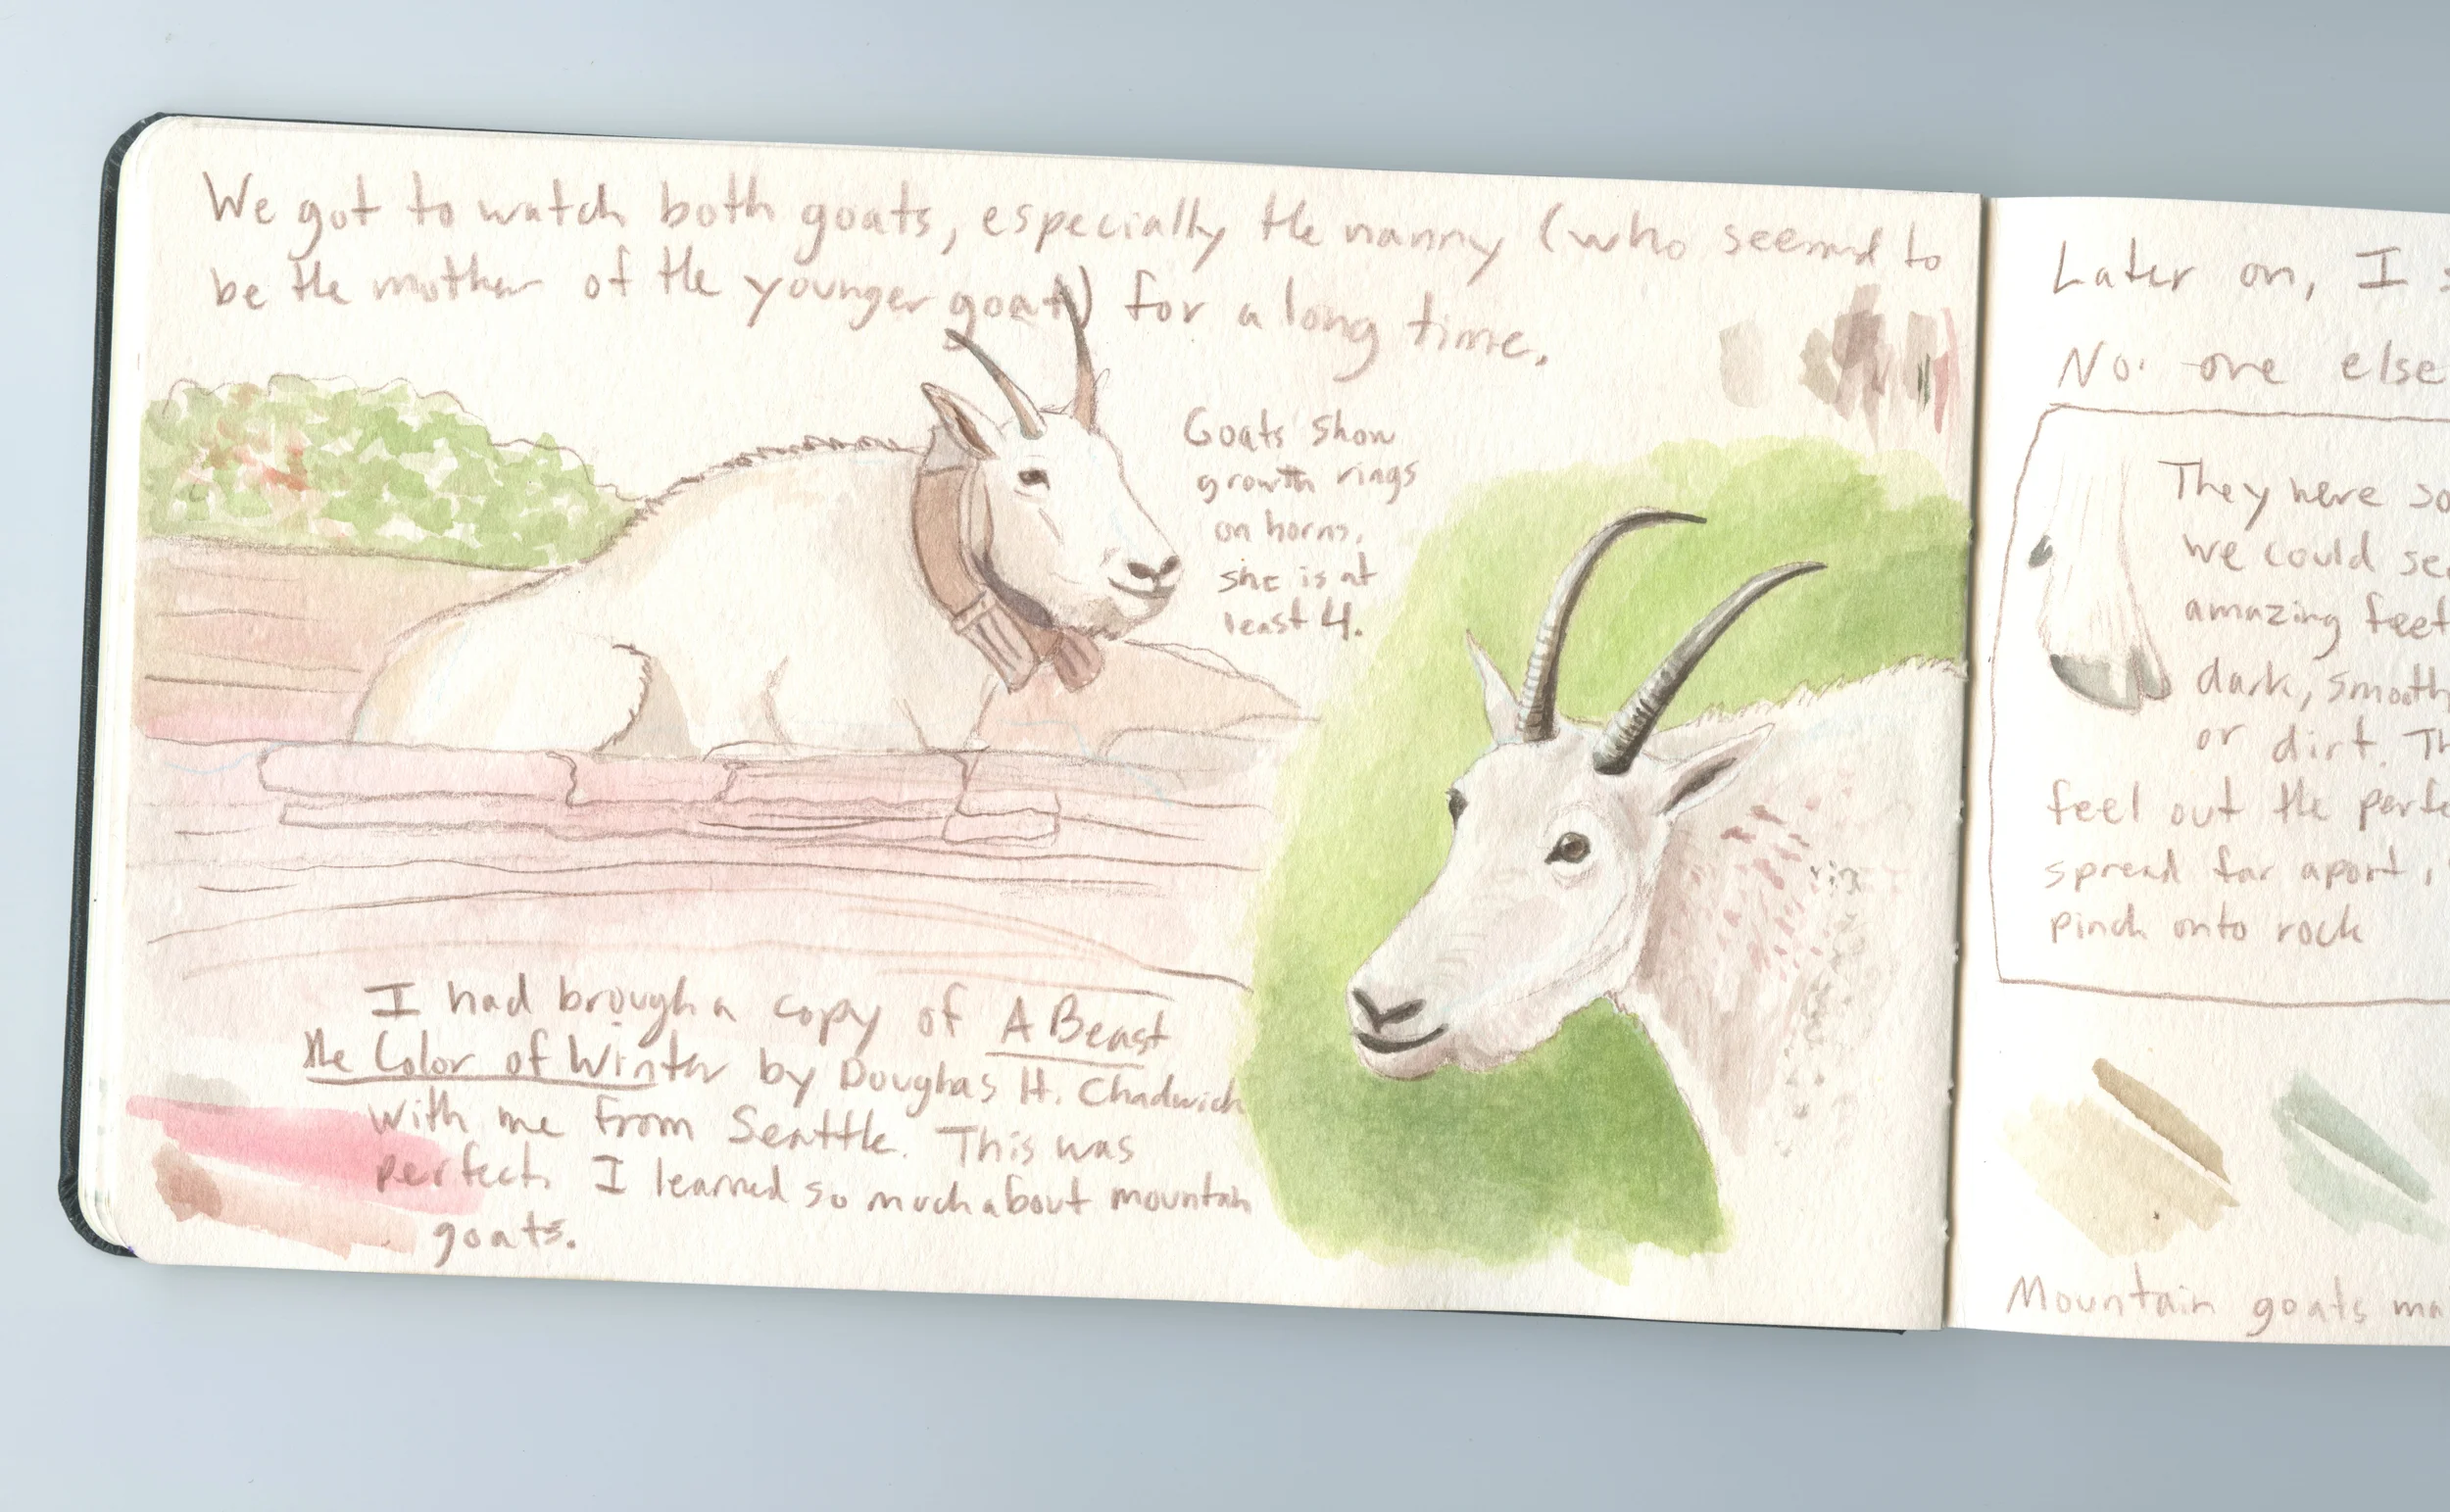 We got to watch both goats, especially the nanny (who seemed to
be the mother of the younger goat) for a long time.
Goats show
growth rings
on horns,
she is at
least 4.
I had brough a copy of A Beast
the Color of Winter by Douglas H. Chadwick
with me from Seattle. This was
perfect. I learned so much about mountain
goats.
Later on, I s
No one else
They were so
we could see
amazing feet
dark, smooth
or dirt. Th
feel out the perfe
spread far apart,
pinch onto rock
Mountain goats ma